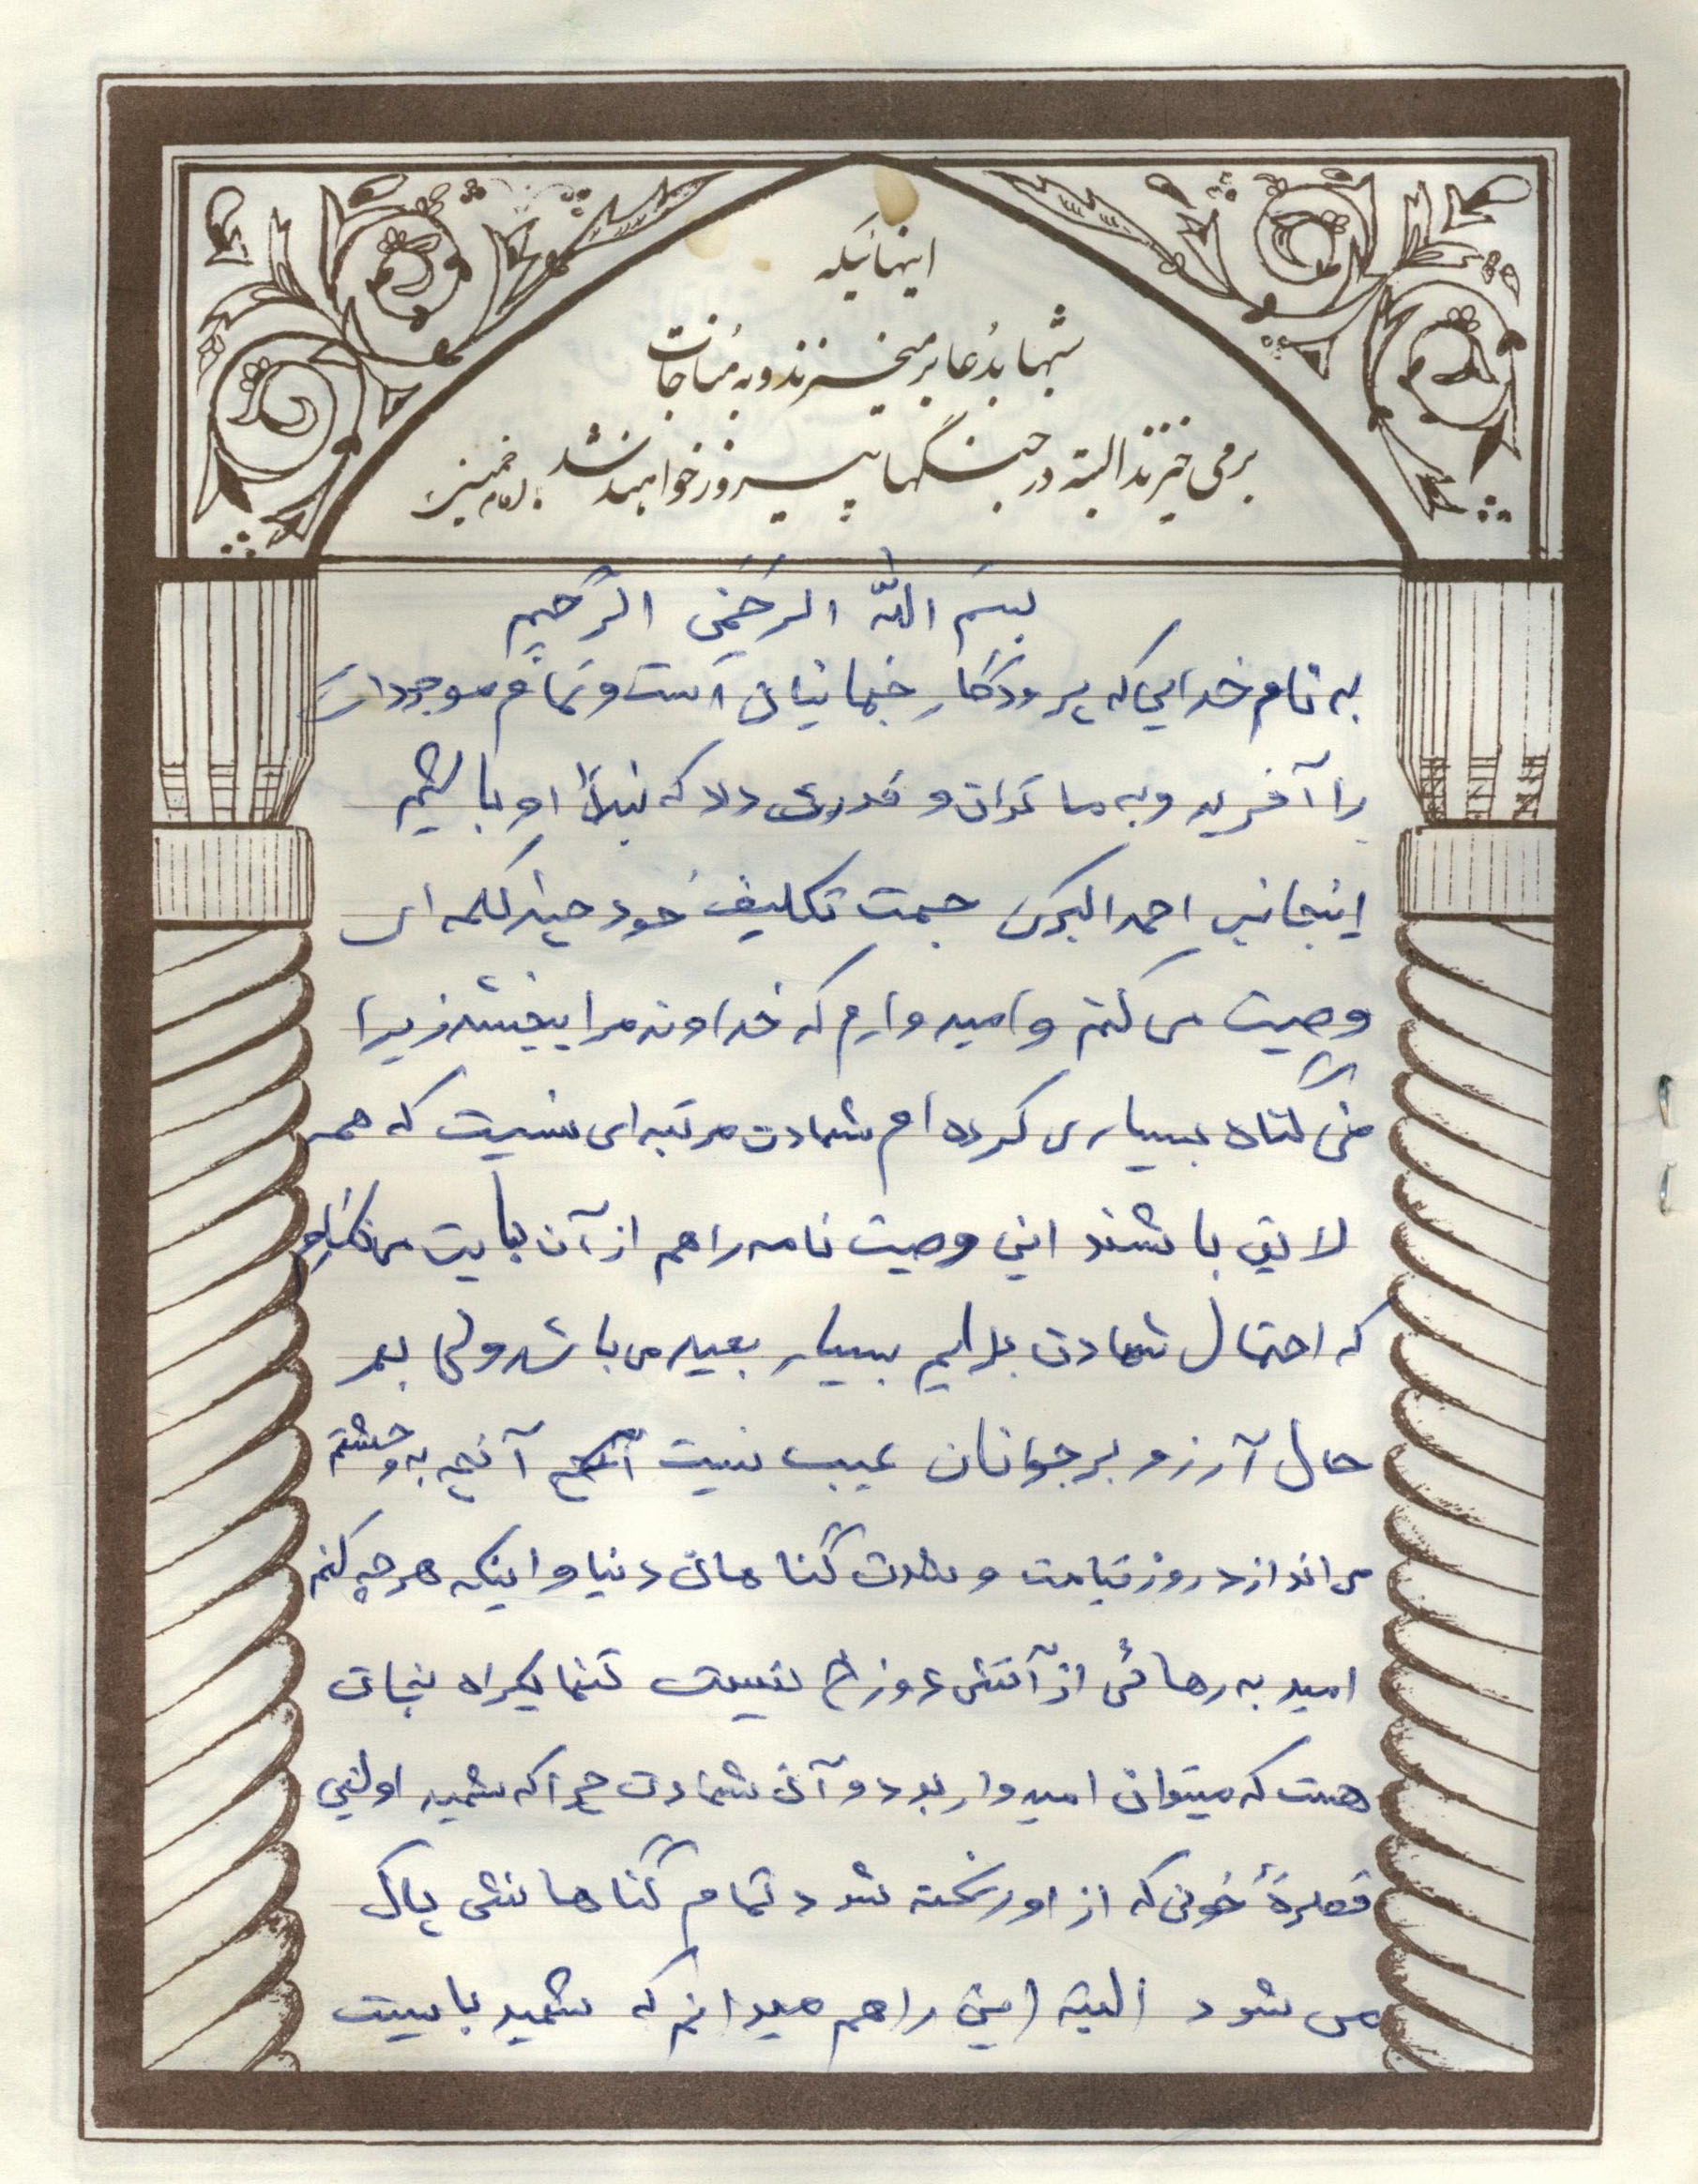 اینهائیکه
شبها بدُعا برمیخیزند و به مُناجات
برمی خیزند البته در جنگها پیروز خواهند شد. امام خمینی
بسم الله الرحمن الرحیم
به نام خدایی که پرودگار جهانیان است و تمام موجودات
را آفرید و به ما توان و قدرت داد که بندهٔ او باشیم
اینجانب احمد اکبری جهت تکلیف خود چند کلمه ای
وصیت می کنم و امیدوارم که خداوند مرا ببخشد زیرا
من گناه بسیاری کرده ام شهادت مرتبه ای نیست که همه
لایق باشند این وصیت نامه را هم از آن بابت می نگارم
که احتمال شهادت برایم بسیار بعید می باشد ولی بهر
حال آرزو بر جوانان عیب نیست آنچه به وحشتم
می اندازد روز قیامت و گناهان دنیا و اینکه هر چه کنم
امید به رهائی از آتش دوزخ نیست تنها یکراه نجات
هست که میتوان امیدوار بود و آن شهادت چرا که شهید اولین
قطرهٔ خونی که از او ریخته شود تمام گناهانش پاک
می شود البته این را هم میدانم که شهید بایست